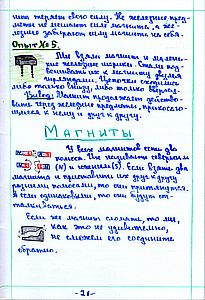 нит теряет свою силу. Не железные пред-
меты не мешают силе магнита, а же-
лезные забирают силу магнита на себя.
Опыт № 5.
Мы взяли магнит и малень-
кие железные шарики. Стали под-
вешивать их к магниту двумя
либо только вниз, либо только вверх.
Вывод: Магнит продолжает действо-
вать через железные предметы, прикоснув-
шиеся к нему и друг к другу.
МАГНИТЫ
У всех магнитов есть два
полюса. Их называют северным
(N) и южным (S). Если взять два
магнита и приставить их друг к другу
разными полюсами, то они притянутся.
А если одинаковыми, то они будут от-
талкиваться.
Если же магнит сломать, то мы,
как это не удивительно,
не сможем его соединить
обратно.
- 21 -